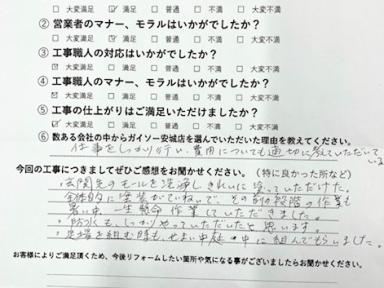 □ 大変満足 ☑ 満足 □ 普通 □ 不満 □ 大変不満
② 営業者のマナー、モラルはいかがでしたか?
□ 大変満足 ☑ 満足 □ 普通 □ 不満 □ 大変不満
③ 工事職人の対応はいかがでしたか?
☑ 大変満足 □ 満足 □ 普通 □ 不満 □ 大変不満
④ 工事職人のマナー、モラルはいかがでしたか?
☑ 大変満足 □ 満足 □ 普通 □ 不満 □ 大変不満
⑤ 工事の仕上がりはご満足いただけましたか?
☑ 大変満足 □ 満足 □ 普通 □ 不満 □ 大変不満
⑥ 数ある会社の中からガイソー安城店を選んでいただいた理由を教えてください。
仕事をしっかり行い、費用についても適切に教えていただいている
今回の工事につきましてぜひご感想をお聞かせください。(特に良かった所など)
・玄関先のモールを洗浄しきれいに塗っていただけた。
・全体的に塗装がていねいで、その前の段階の作業も
暑い中、一生懸命作業していただきました。
・防水も、しっかりやっていただいたと思います。
・足場を組む時も、せまい中庭の中に組んでもらいました。
お客様によりご満足頂くため、今後リフォームしたい箇所や気になる事がございましたらお聞かせください。